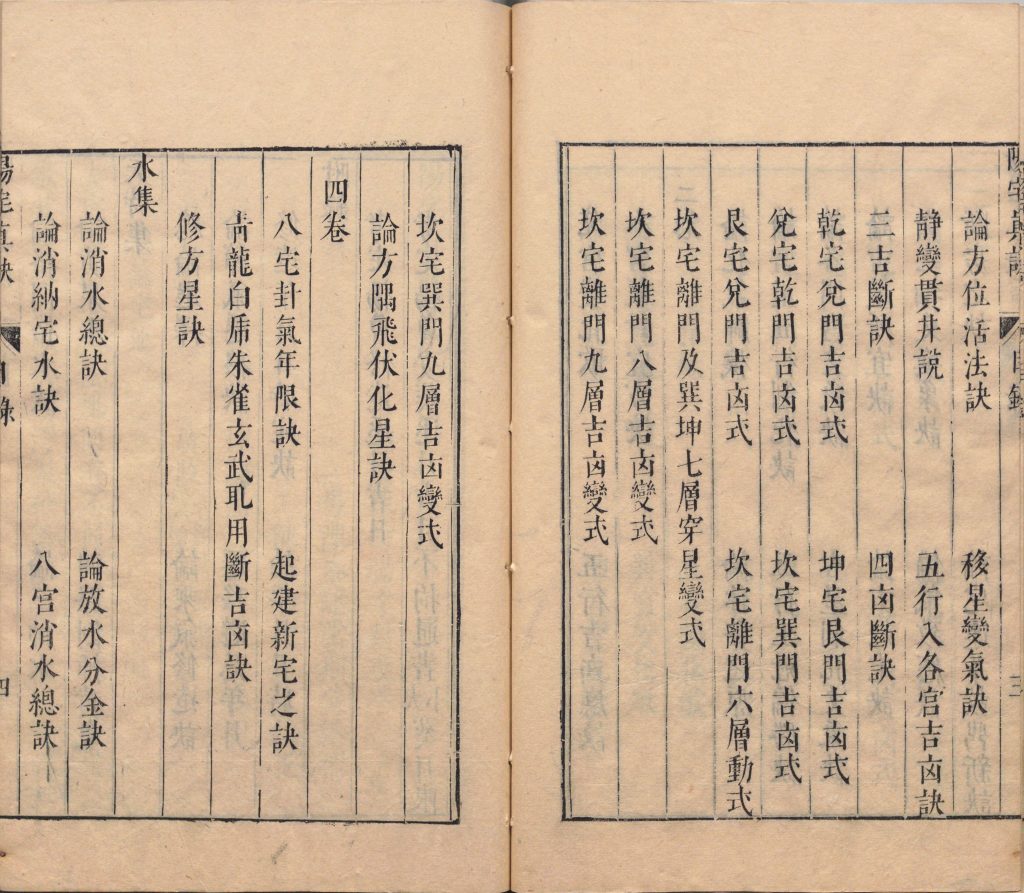 論方位活法訣　移星變氣訣
靜變貫井說　五行入各宮吉凶訣
三吉斷訣　四凶斷訣
乾宅兌門吉凶式　坤宅艮門吉凶式
兌宅乾門吉凶式　坎宅巽門吉凶式
艮宅兌門吉凶式　坎宅離門六層動式
坎宅離門及巽坤七層穿星變式
坎宅離門八層吉凶變式
坎宅離門九層吉凶變式
坎宅巽門九層吉凶變式
論方隅飛伏化星訣
四卷
八宅封氣年限訣　起建新宅之訣
靑龍白虎朱雀玄武耴用斷吉凶訣
修方星訣
水集
論消水總訣　論放水分金訣
論消納宅水訣　八宮消水總訣
目錄
四